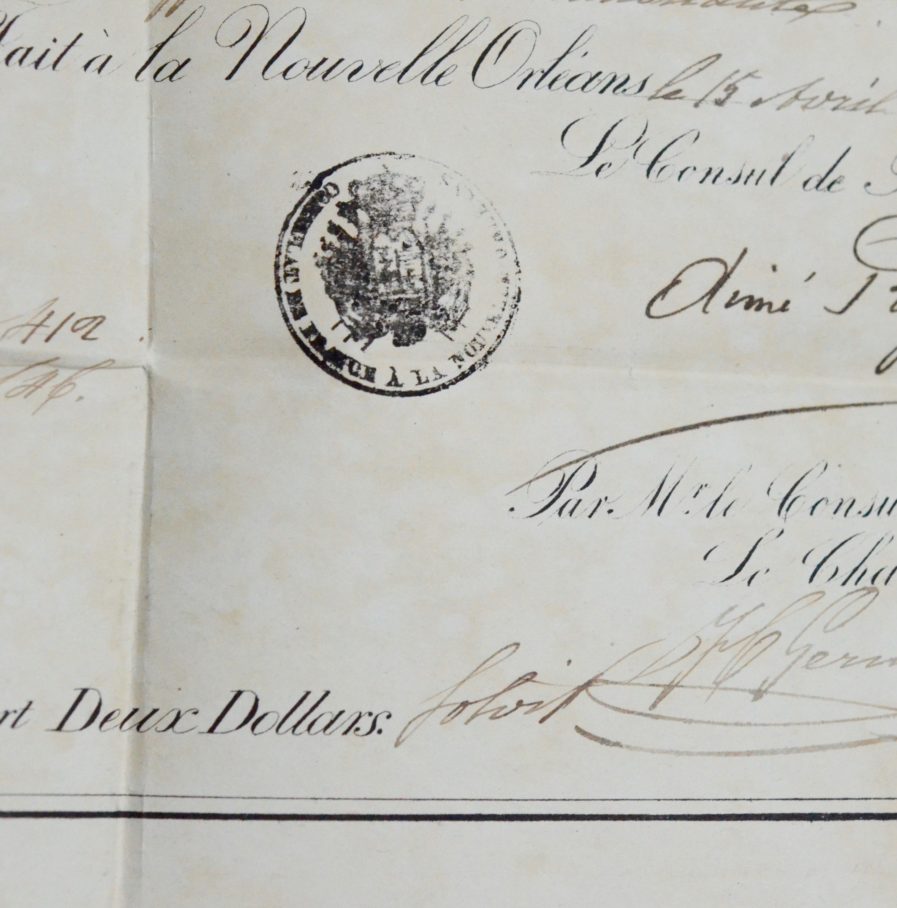 Fait à la Nouvelle Orléans le 15 Avril
Le Consul de
CONSULAT DE FRANCE À LA NOUVELLE ORLÉANS
Aimé
412
146.
Par Mr. le Consu
Le Cha
Germ
rt Deux Dollars. Solvit